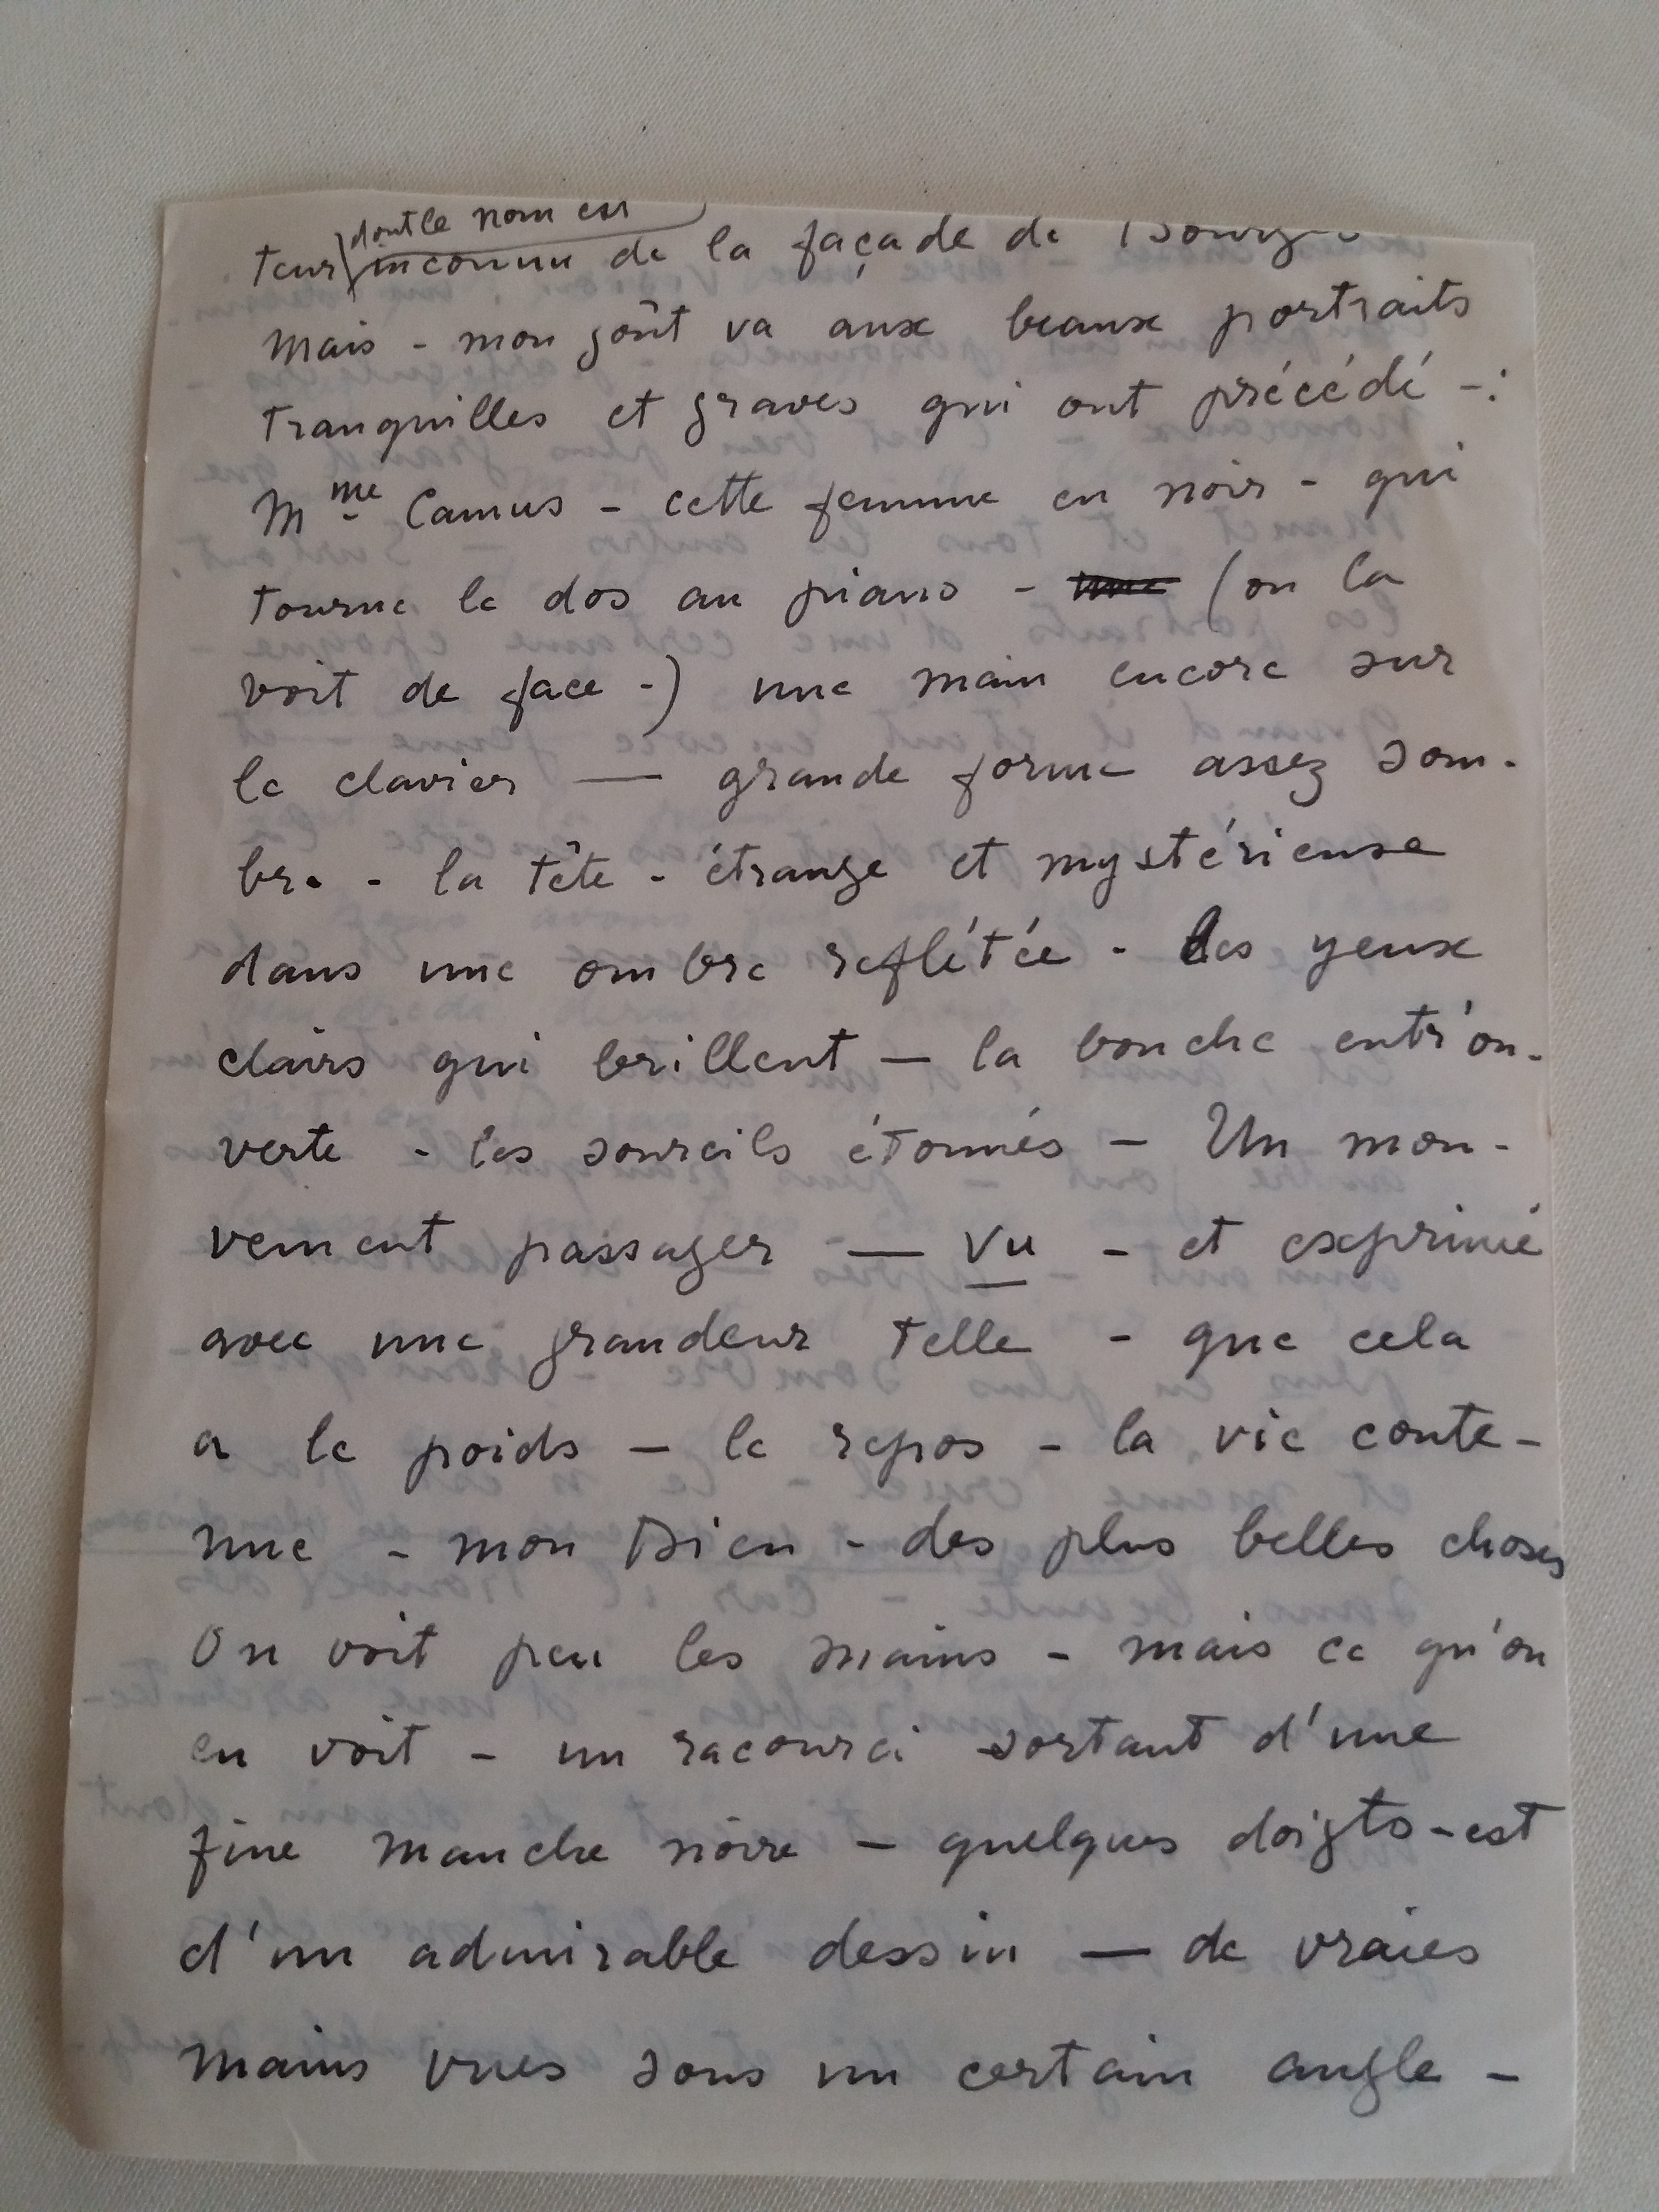 dont le nom est
teur inconnu de la façade de Bourges
Mais - mon goût va aux beaux portraits
tranquilles et graves qui ont précédé - :
Mme Camus - cette femme en noir - qui
tourne le dos au piano - une (on la
voit de face -) une main encore sur
le clavier — grande forme assez som-
bre - la tête - étrange et mystérieuse
dans une ombre reflétée - les yeux
clairs qui brillent — la bouche entr'ou-
verte - les sourcils étonnés — Un mou-
vement passager — vu - et exprimé
avec une grandeur telle - que cela
a le poids — le repos - la vie conte-
nue - mon Dieu - des plus belles choses
On voit peu les mains - mais ce qu'on
en voit - un racourci sortant d'une
fine manche noire - quelques doigts - est
d'un admirable dessin — de vraies
mains vues sous un certain angle -